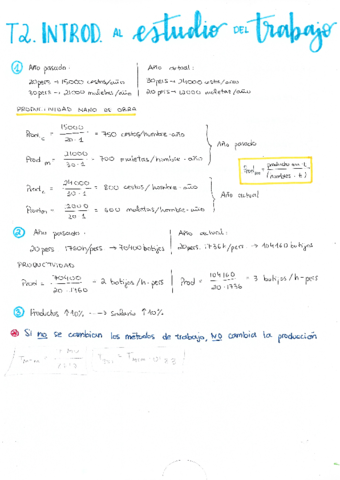 T2. INTROD. AL estudio DEL trabajo
① Año pasado: Año actual:
20 pers → 15000 cestos/año 30 pers → 24000 cestas/año
30 pers → 21000 maletas/año 20 pers → 12000 maletas/año
PRODUCTIVIDAD MANO DE OBRA
Prod c = 15000 / 20·1 = 750 cestos/hombre-año
Prod m = 21000 / 30·1 = 700 maletas/hombre-año
Año pasado
Prod = / (hombres · h)
= 24000 / 30·1 = 800 cestos/hombre-año
= / 20·1 = 600 maletas/hombre-año
Año actual
② Año pasado: Año actual:
20 pers 1760h/pers → 70400 botijos 20 pers. 1736h/pers → 104160 botijos
PRODUCTIVIDAD
Prod = 70400 / 20·1760 = 2 botijos/h·pers Prod = 104160 / 20·1736 = 3 botijos/h·pers
③ Productos ↑10% → salario ↑10%
Si no se cambian los métodos de trabajo, NO cambia la producción